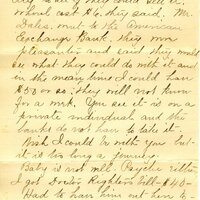 see if they could sell it.
what ask $6, they said. Mr.
Dales, next is the American
Exchange Bank. they more
pleasanter and said they would
see what they could do with it and
in the mean time I could have
$50 or so; they will not know
for a wk. You see it is on a
private individuals and the
banks do not have to take it.
Wish I could be with you but
it is too long a journey.
Baby is not well. Psychic
I got Doctor Righters bill - $40 -
Had to have him out here to